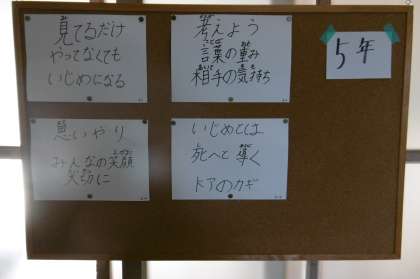 見てるだけ
やってなくても
いじめになる
考えよう
言葉の重み
相手の気持ち
5年
思いやり
みんなの笑顔
大切に
いじめとは
死へと導く
ドアのカギ